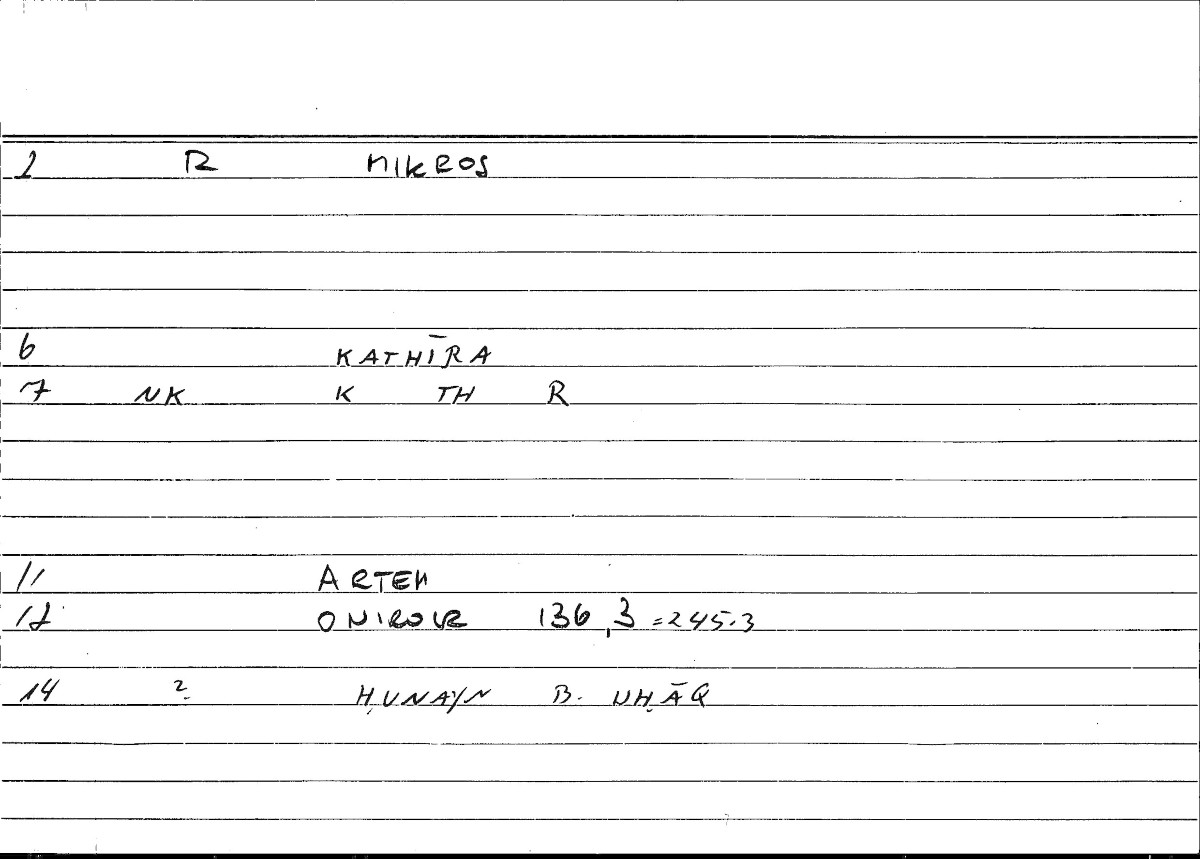 1 R MIKROS
6 KATHĪRA
7 NK K TH R
11 ARTEM
12 ONIROCR 136,3 =245.3
14 2. ḤUNAYN B. ISḤĀQ